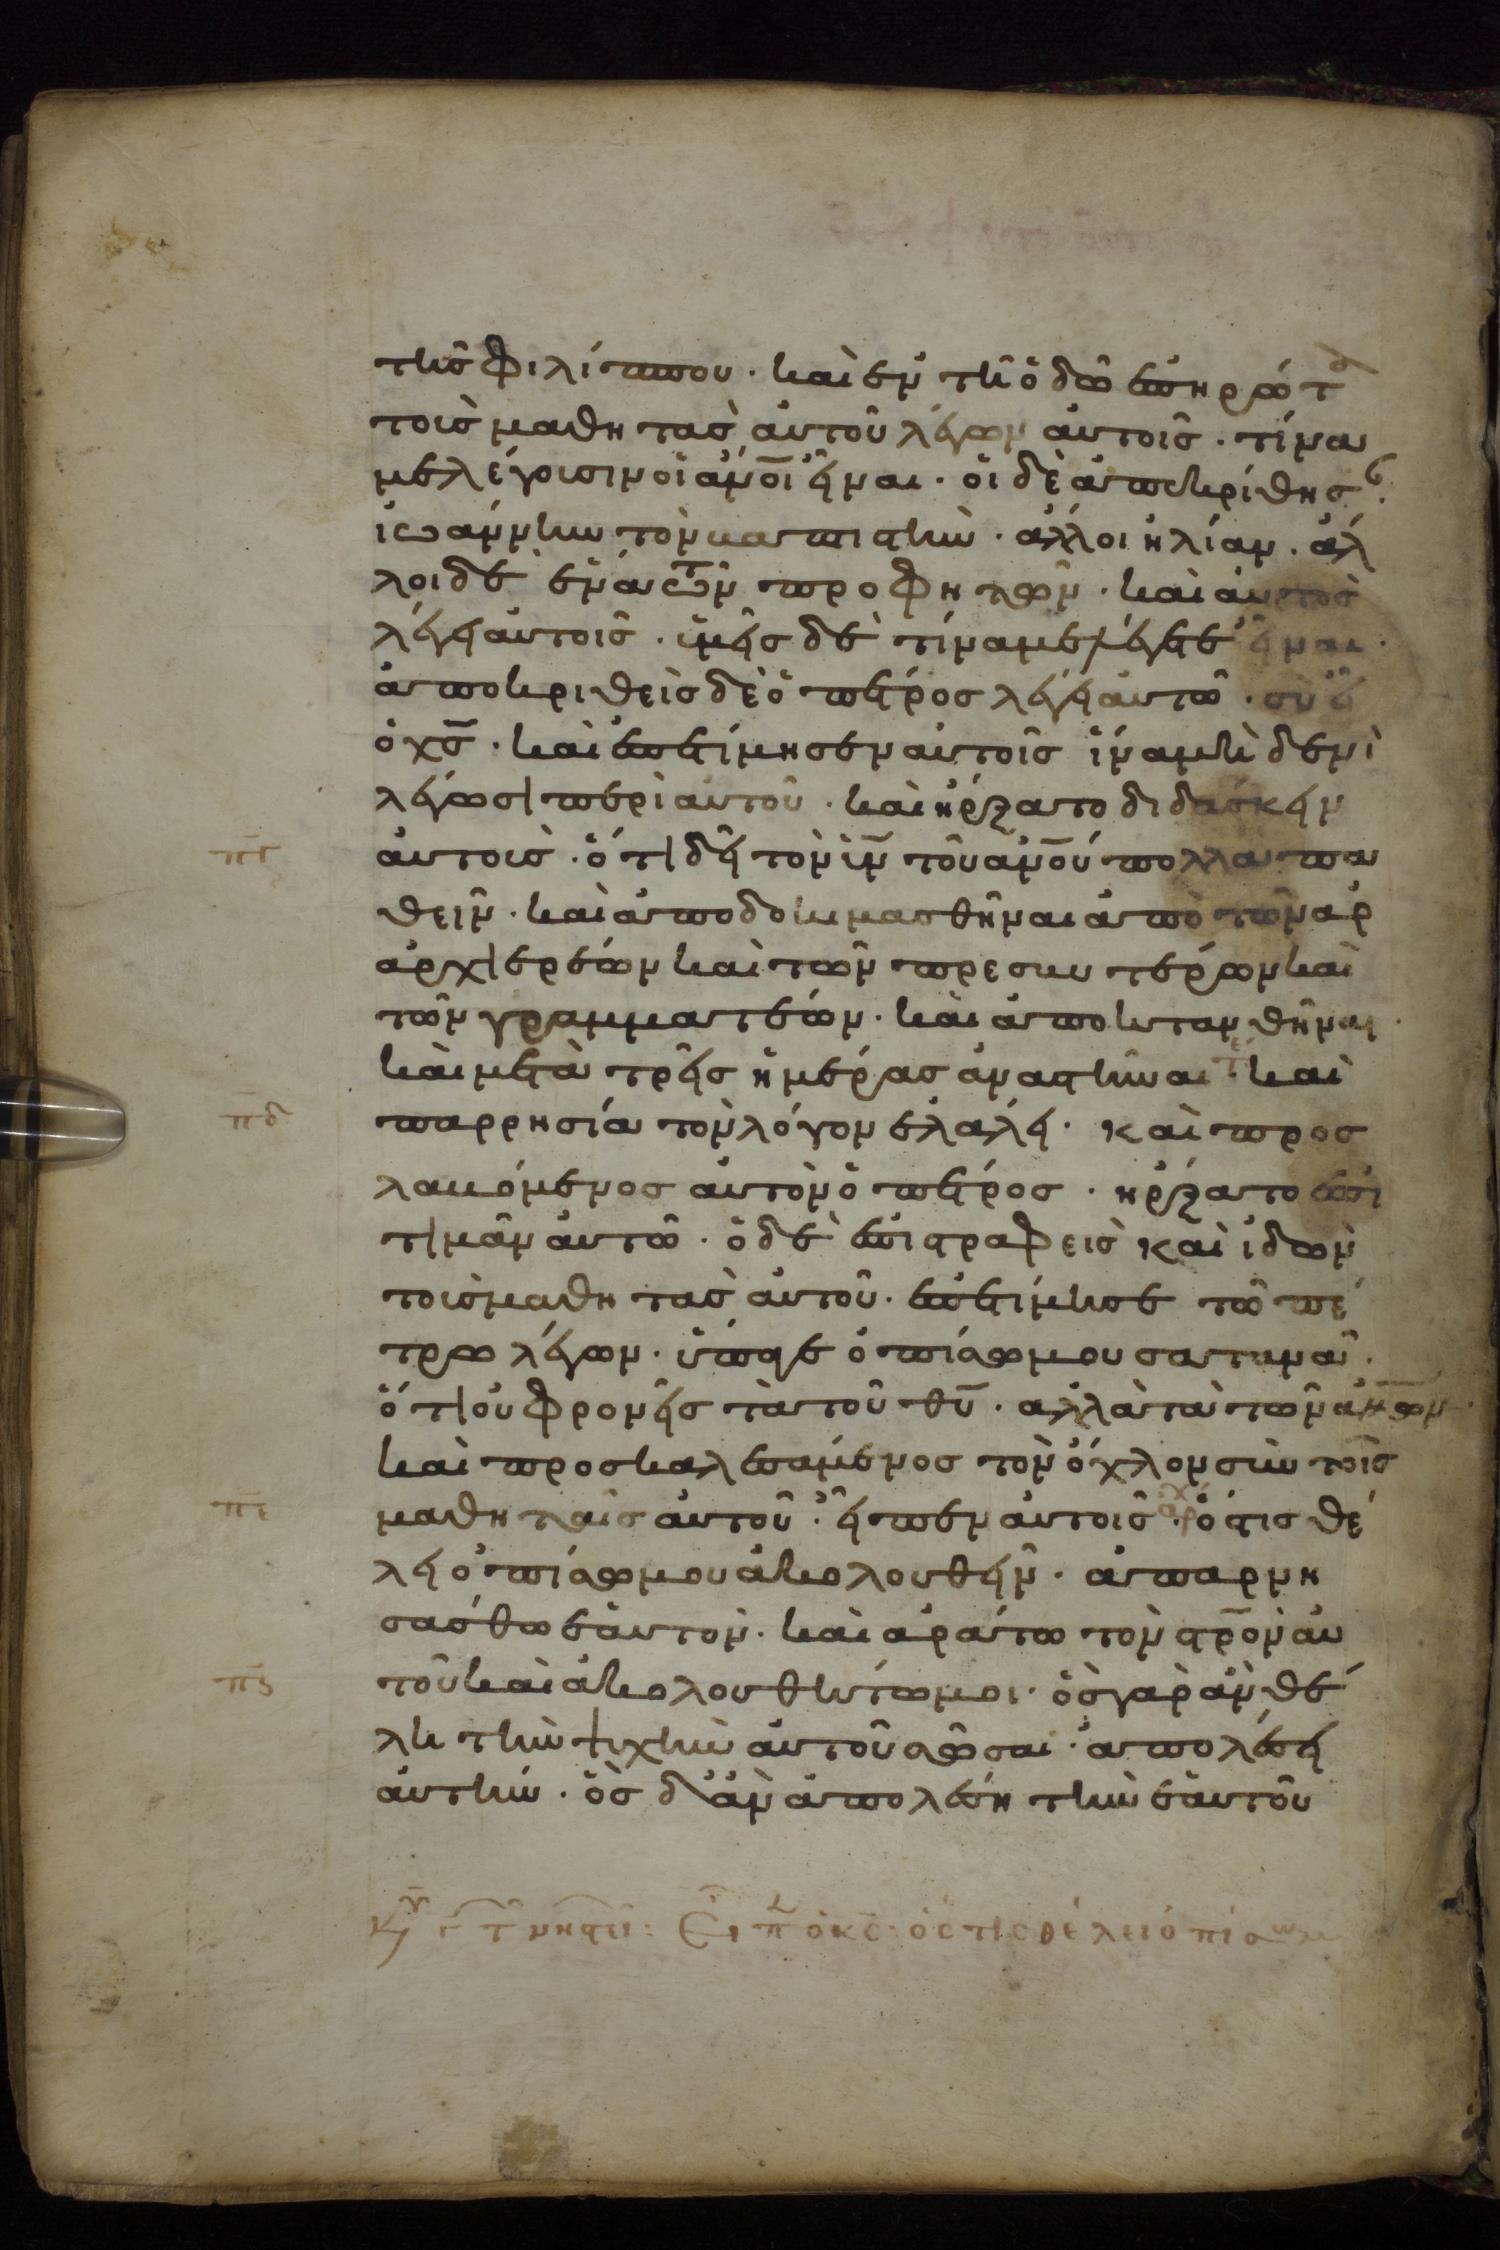 τῆσ φιλίππου · καὶ ἐν τῆ ὁδῶ ἐπηρώτα
τοὺσ μαθητασ αὐτοῦ λέγων αὐτοῖσ · τίνα
με λέγουσιν οἱ ἀν̅οι εἶναι · οἱ δὲ ἀπεκρίθησαν
ἰωάννην τὸν βαπτιστὴν · ἄλλοι ἠλίαν · ἄλ
λοι δὲ ἕνα τῶν προφητῶν · καὶ αὐτὸσ
λέγει αὐτοῖσ · ὑμεῖσ δὲ τίνα με λέγετε εἶναι ·
ἀποκριθεὶσ δὲ ὁ πέτροσ λέγει αὐτῶ · σὺ εἶ
ὁ χσ̅ · καὶ ἐπετίμησεν αὐτοῖσ ἵνα μὴ δενὶ
λέγωσι περὶ αὐτοῦ · καὶ ἤρξατο διδάσκειν
πγ̅ αὐτοὺσ · ὅτι δεῖ τὸν υἱν̅ τοῦ ἀν̅ου πολλὰ πα
θεῖν · καὶ ἀποδοκιμασθῆναι ἀπὸ τῶν ἀρ
αρχιερέων καὶ τῶν πρεσβυτέρων καὶ
τῶν γραμματέων · καὶ ἀποκτανθῆναι ·
καὶ μετὰ τρεῖσ ἡμέρασ ἀναστῆναι · καὶ
πδ̅ παρρησία τὸν λόγον ἐλάλει · καὶ προσ
λαβόμενοσ αὐτὸν ὁ πέτροσ · ἤρξατο ἐπι
τιμᾶν αὐτῶ · ὁ δὲ ἐπιστραφεὶσ καὶ ἰδὼν
τοὺσ μαθητὰσ αὐτοῦ · ἐπετίμησε τῶ πέ
τρω λέγων · ὕπαγε ὀπίσω μου σατανᾶ ·
ὅτι οὐ φρονεῖσ τὰ τοῦ θυ̅ · ἀλλὰ τὰ τῶν ἀν̅ων ·
καὶ προσκαλεσάμενοσ τὸν ὄχλον σὺν τοῖσ
πε̅ μαθηταῖσ αὐτοῦ · εἶπεν αὐτοῖσ · ὅστισ θέ
λει ὀπίσω μου ἀκολουθεῖν · ἀπαρνη
σάσθω ἑαυτὸν · καὶ ἀράτω τὸν στρ̅ον αὐ
πϛ̅ τοῦ καὶ ἀκολουθήτω μοι · ὃσ γὰρ ἂν θέ
λη τὴν ψυχὴν αὐτοῦ σῶσαι · ἀπολέσει
αὐτήν · ὃσ δ' ἂν ἀπολέση τὴν ἑαυτοῦ
εἶπ ὁ κσ̅ · ὅστισ θέλει ὀπίσω